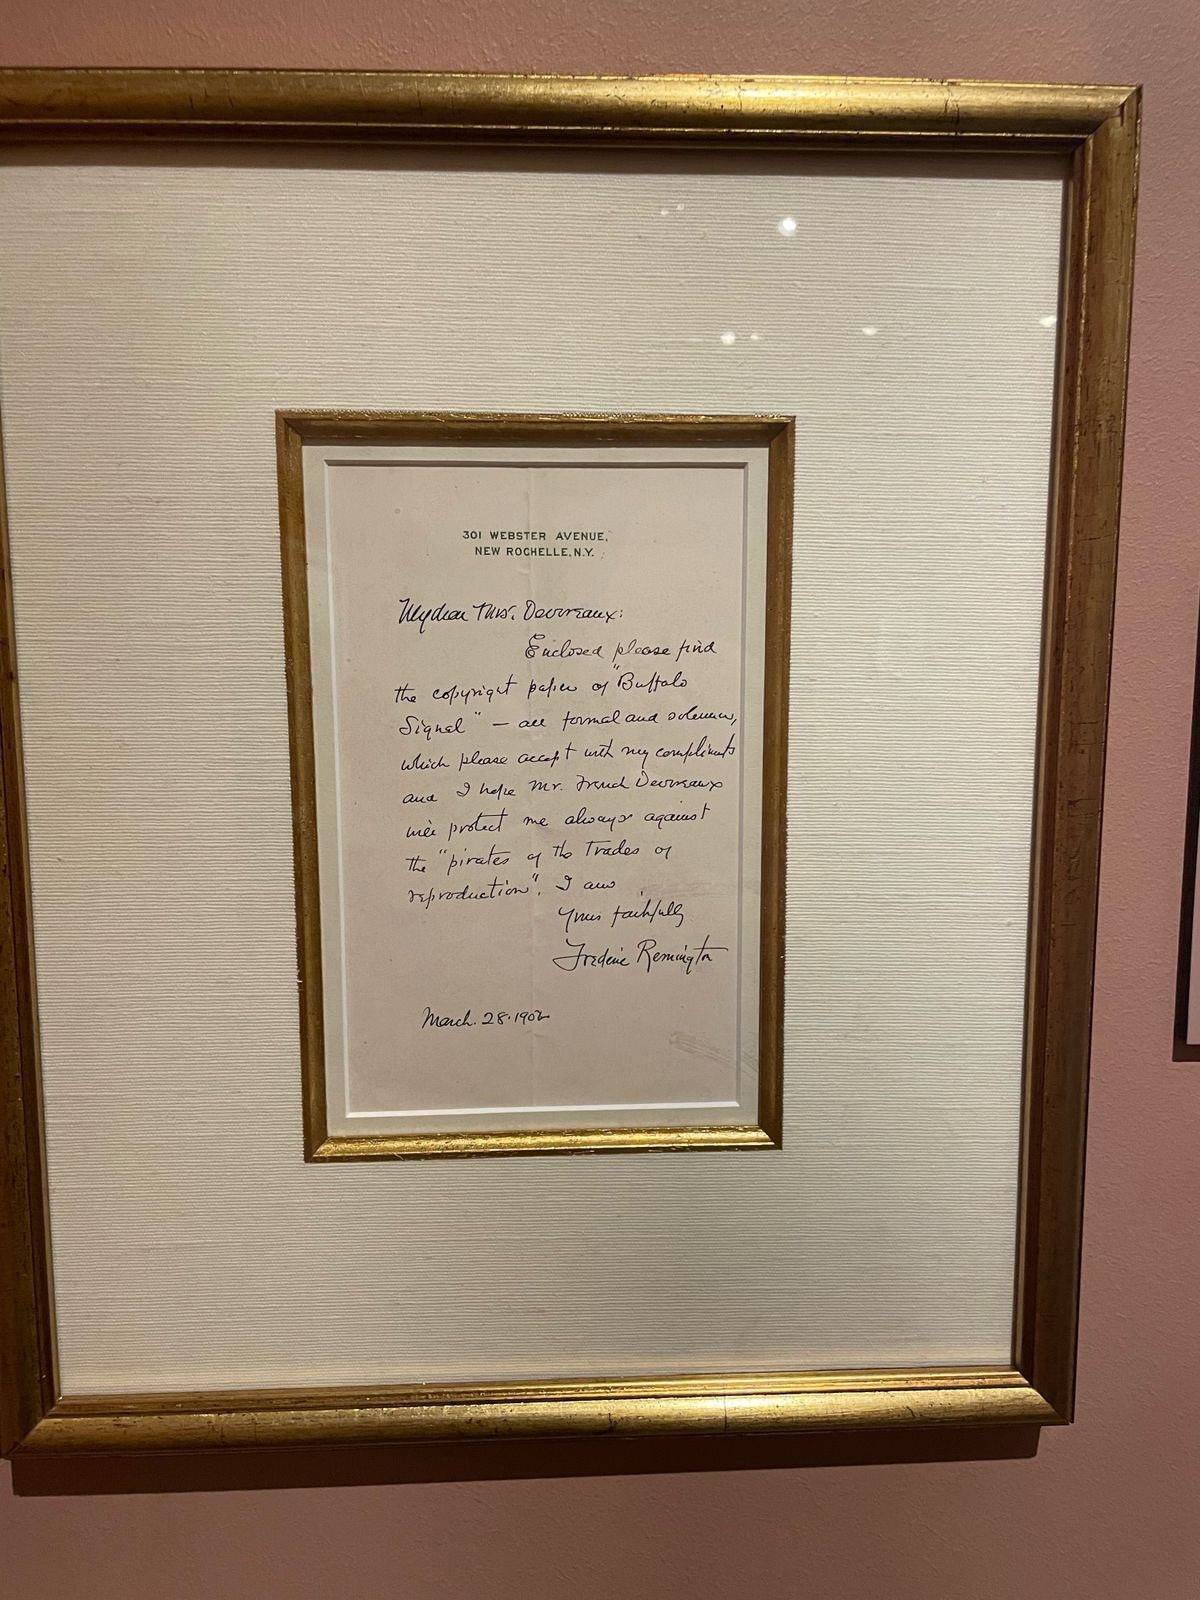 301 WEBSTER AVENUE,
NEW ROCHELLE, N.Y.
My dear Mrs. Devereaux:
Enclosed please find
the copyright paper of "Buffalo
Signal" — all formal and solemn,
which please accept with my compliments
and I hope Mr. Devereaux
will protect me always against
the "pirates of the Trades of
reproduction". I am
Yours faithfully
Frederic Remington
March. 28. 1902